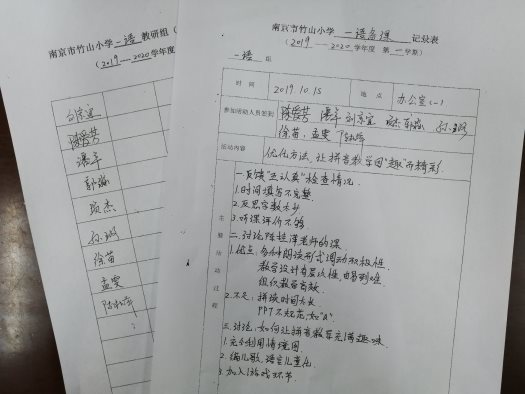 南京市竹山小学 一语 教研组（
（2019—2020学年度
南京市竹山小学 一语备课 记录表
（2019—2020学年度 第一学期）
一语 组
时间 2019.10.15 地点 办公室(一)
参加活动人员签到
徐苗 孟雯
活动内容 优化方法，让拼音教学因"趣"而精彩.
主要活动过程
一.反馈"五认真"检查情况.
1.时间填写不完整.
2.反思字数不少
3.听课评价不够
二.讨论陈桂萍老师的课.
1.优点:多种朗读形式调动积极性.
教学设计有层次性,由易到难.
组织教学有效.
2.不足:拼读时间太长
PPT不规范,如"ɑ".
三.讨论:如何让拼音教学充满趣味.
1.充分利用情境图.
2.编儿歌,语言儿童化
3.加入游戏环节.
郭磊
孟雯
徐苗